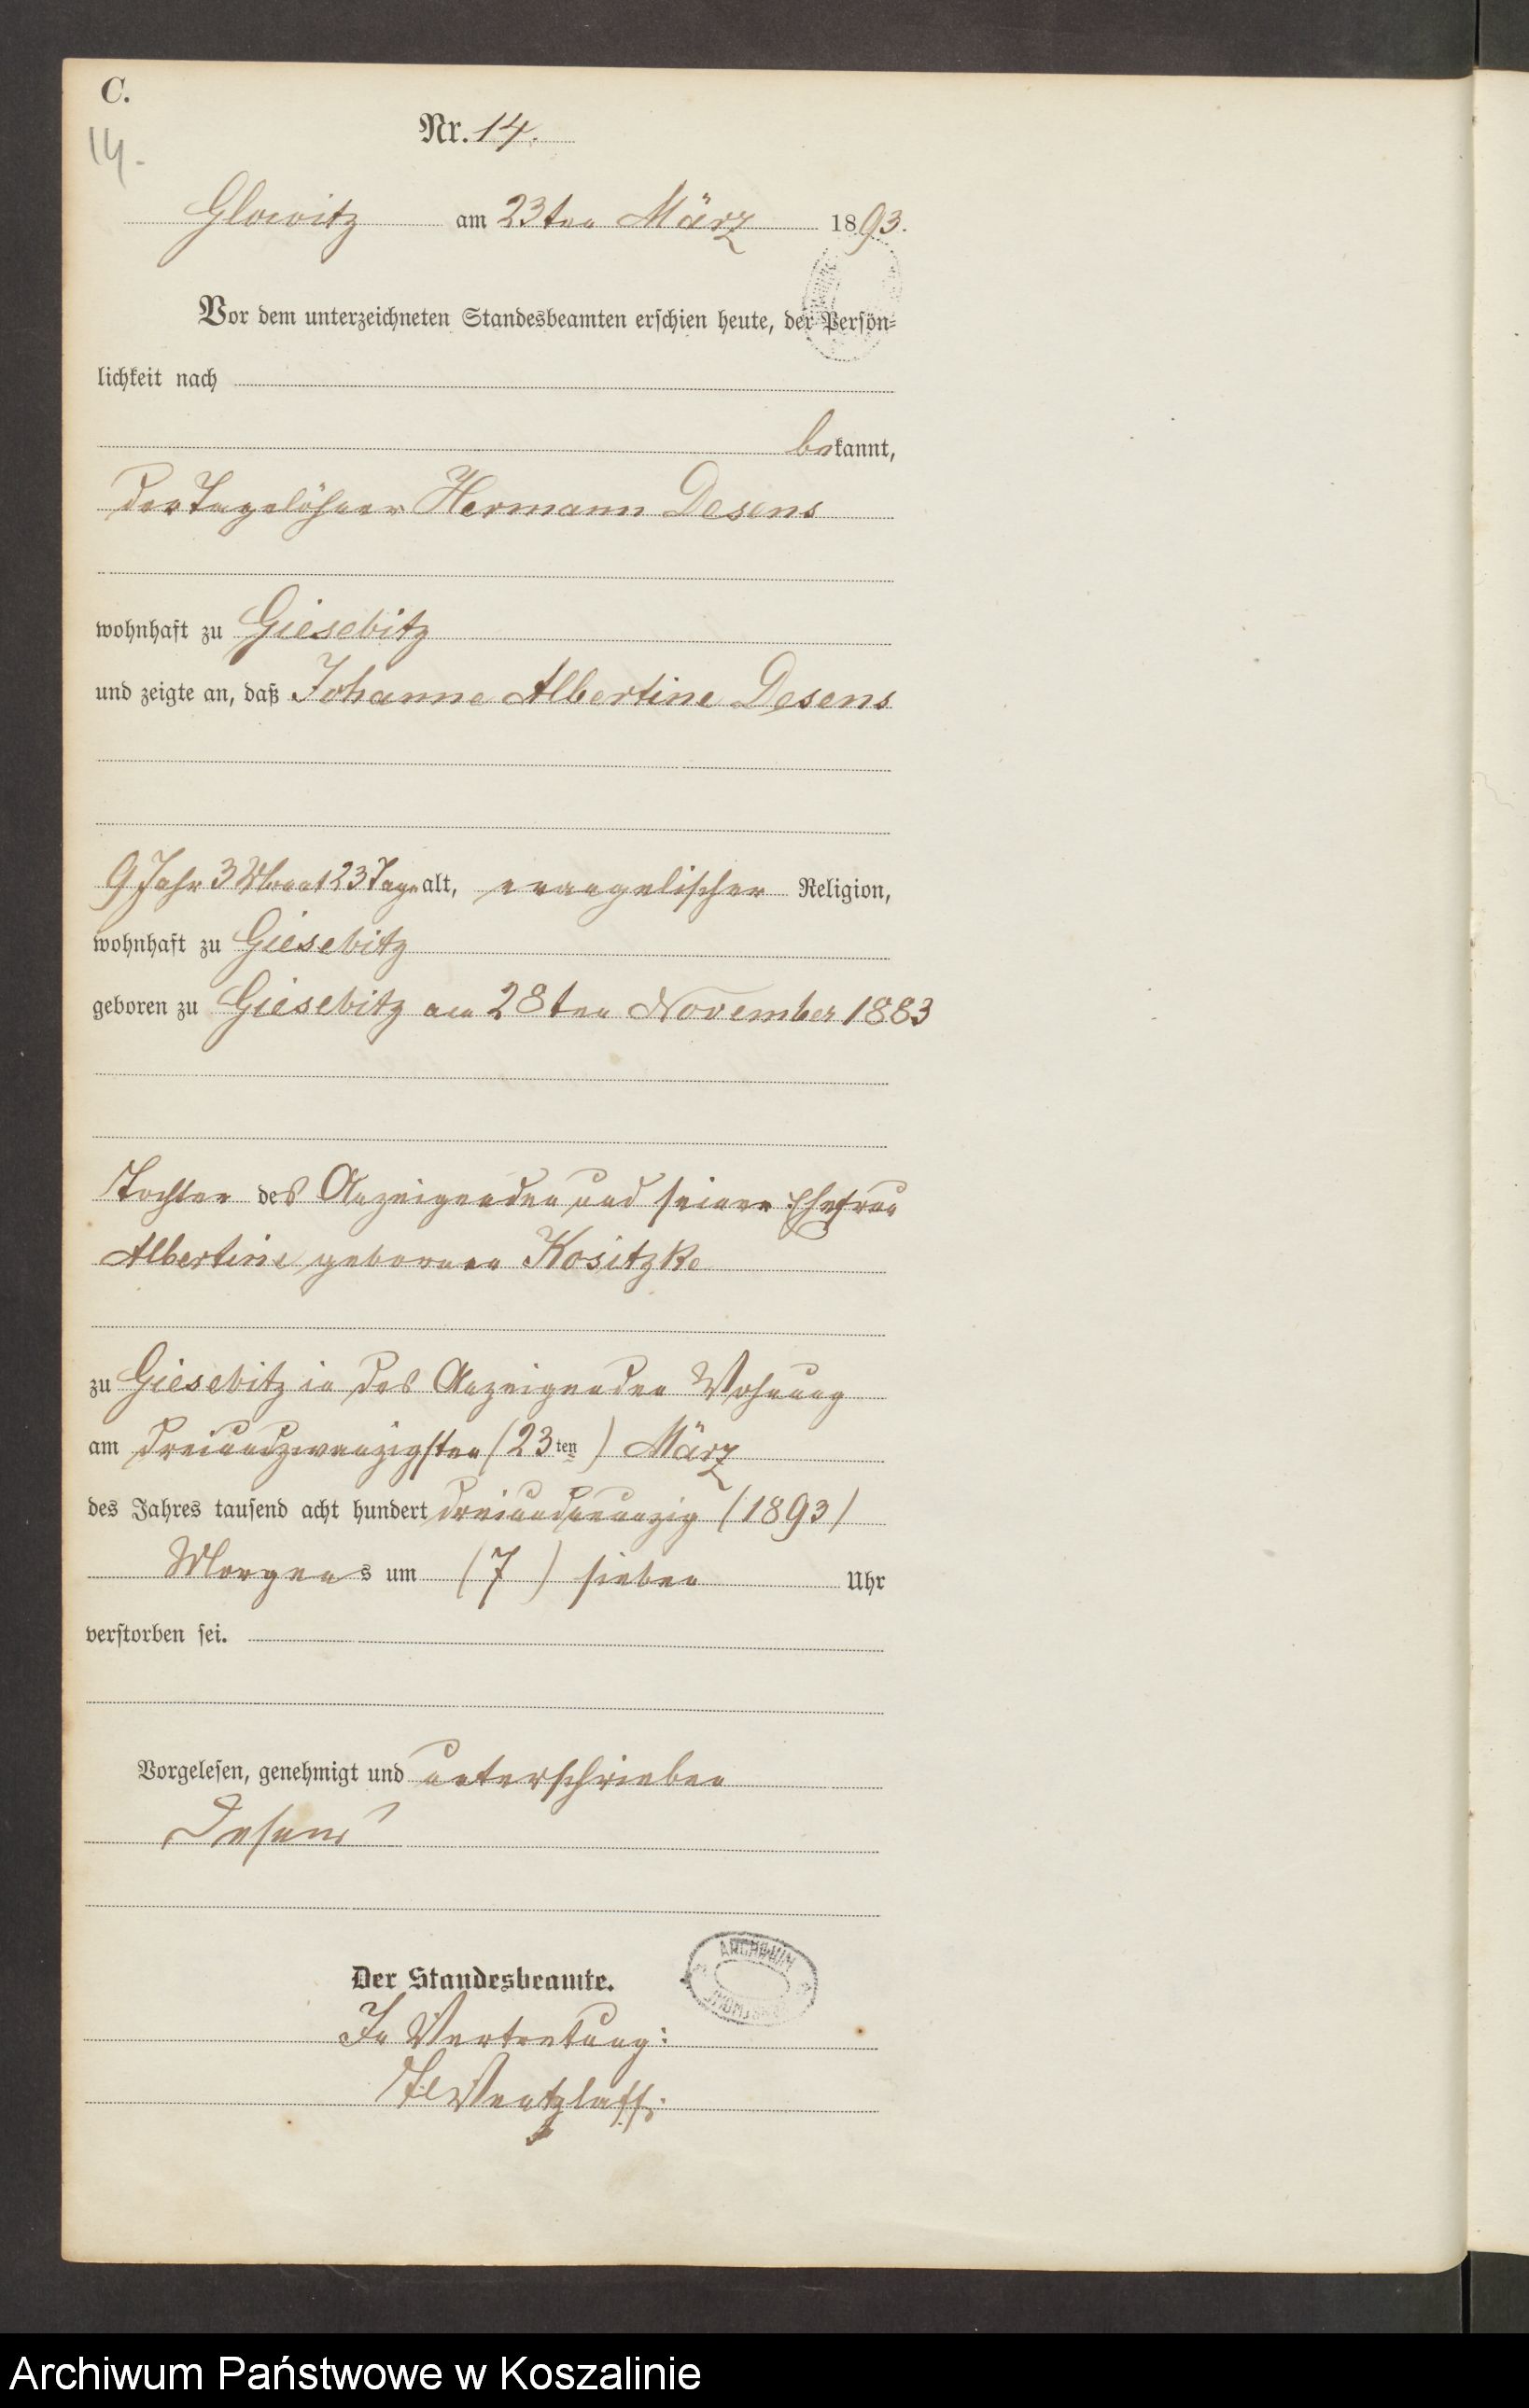 C.
14.
Nr. 14.
Glowitz am 23ten März 1893.
Vor dem unterzeichneten Standesbeamten erschien heute, der Persön-
lichkeit nach
bekannt,
der Tagelöhner Hermann Desens
wohnhaft zu Giesebitz
und zeigte an, daß Johanne Albertine Desens
9 Jahr 3 Monat 23 Tage alt, evangelischer Religion,
wohnhaft zu Giesebitz
geboren zu Giesebitz am 28ten November 1883
Tochter des Anzeigenden und seiner Ehefrau
Albertine geborenen Kositzke
zu Giesebitz in des Anzeigenden Wohnung
am dreiundzwanzigsten (23ten) März
des Jahres tausend acht hundert dreiundneunzig (1893)
Morgens um (7) sieben Uhr
verstorben sei.
Vorgelesen, genehmigt und unterschrieben
Desens
Der Standesbeamte.
ARCHIWUM
In Vertretung:
Wentzlaff.
Archiwum Państwowe w Koszalinie